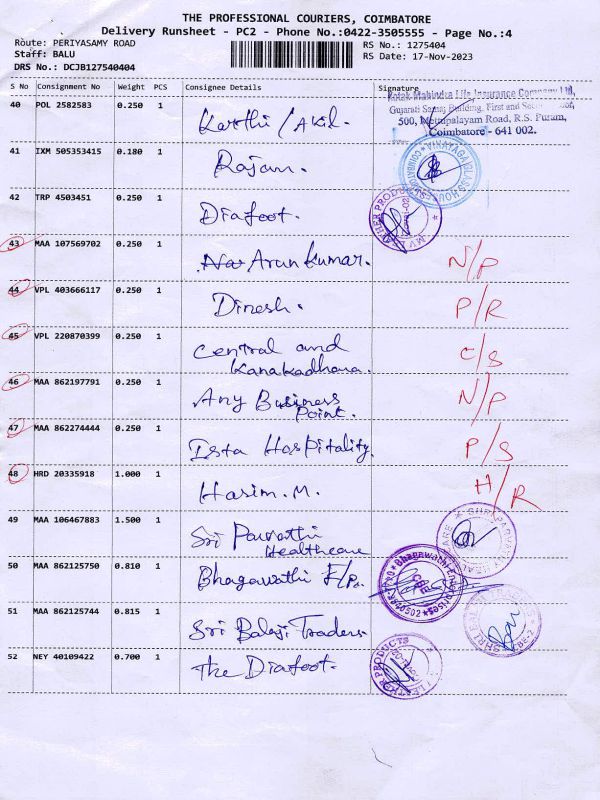 THE PROFESSIONAL COURIERS, COIMBATORE
Delivery Runsheet - PC2 - Phone No.:0422-3505555 - Page No.:4
Route: PERIYASAMY ROAD RS No.: 1275404
Staff: BALU RS Date: 17-Nov-2023
DRS No.: DCJB127540404
S No Consignment No Weight PCS Consignee Details Signature
Kotak Mahindra Life Insurance Company Ltd,
Gujarati Samaj Building, First and
500, Mettupalayam Road, R.S. Puram,
Coimbatore - 641 002.
40 POL 2582583 0.250 1 Karthi / Akil.
41 IXM 505353415 0.180 1 Rajam.
VINAYAGA GLASS HOUSE
42 TRP 4503451 0.250 1 Diafoot.
43 MAA 107569702 0.250 1 Arun Kumar. N/P
44 VPL 403666117 0.250 1 Dinesh. P/R
45 VPL 220870399 0.250 1 Central and Kanakadhara. C/S
46 MAA 862197791 0.250 1 Any Business Point. N/P
47 MAA 862274444 0.250 1 Ista Hospitality. P/S
48 HRD 20335918 1.000 1 Hasim. M. H/R
49 MAA 106467883 1.500 1 Sri Parvathi Healthcare
50 MAA 862125750 0.810 1 Bhagawathi E/Ps.
Bhagawathi Enterprises
51 MAA 862125744 0.815 1 Sri Balaji Traders.
52 NEY 40109422 0.700 1 The Diafoot.